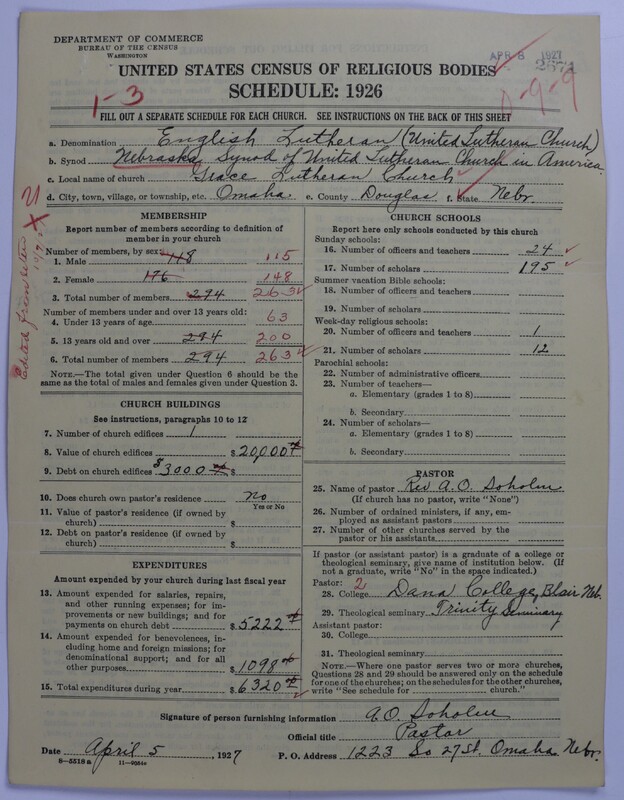 DEPARTMENT OF COMMERCE
BUREAU OF THE CENSUS
WASHINGTON
APR 8 1927
2571
UNITED STATES CENSUS OF RELIGIOUS BODIES
SCHEDULE: 1926
1-3
0-9-9
FILL OUT A SEPARATE SCHEDULE FOR EACH CHURCH. SEE INSTRUCTIONS ON THE BACK OF THIS SHEET
a. Denomination English Lutheran (United Lutheran Church)
b. Synod Nebraska Synod of United Lutheran Church in America
c. Local name of church Grace Lutheran Church
d. City, town, village, or township, etc. Omaha e. County Douglas f. State Nebr.
Edited from letter
MEMBERSHIP
Report number of members according to definition of member in your church
Number of members, by sex:
1. Male 118 115
2. Female 176 148
3. Total number of members 294 263
Number of members under and over 13 years old:
4. Under 13 years of age 63
5. 13 years old and over 294 200
6. Total number of members 294 263
NOTE.—The total given under Question 6 should be the same as the total of males and females given under Question 3.
CHURCH BUILDINGS
See instructions, paragraphs 10 to 12
7. Number of church edifices 1
8. Value of church edifices $ 20,000
9. Debt on church edifices $3000 $
10. Does church own pastor's residence No
Yes or No
11. Value of pastor's residence (if owned by church) $
12. Debt on pastor's residence (if owned by church) $
EXPENDITURES
Amount expended by your church during last fiscal year
13. Amount expended for salaries, repairs, and other running expenses; for improvements or new buildings; and for payments on church debt $ 5222
14. Amount expended for benevolences, including home and foreign missions; for denominational support; and for all other purposes $ 1098
15. Total expenditures during year $ 6320
CHURCH SCHOOLS
Report here only schools conducted by this church
Sunday schools:
16. Number of officers and teachers 24
17. Number of scholars 195
Summer vacation Bible schools:
18. Number of officers and teachers
19. Number of scholars
Week-day religious schools:
20. Number of officers and teachers 1
21. Number of scholars 12
Parochial schools:
22. Number of administrative officers
23. Number of teachers—
a. Elementary (grades 1 to 8)
b. Secondary
24. Number of scholars—
a. Elementary (grades 1 to 8)
b. Secondary
PASTOR
25. Name of pastor Rev A.O. Soholm
(If church has no pastor, write "None")
26. Number of ordained ministers, if any, employed as assistant pastors
27. Number of other churches served by the pastor or his assistants
If pastor (or assistant pastor) is a graduate of a college or theological seminary, give name of institution below. (If not a graduate, write "No" in the space indicated.)
Pastor: 2
28. College Dana College, Blair Neb.
29. Theological seminary Trinity Seminary
Assistant pastor:
30. College
31. Theological seminary
NOTE.—Where one pastor serves two or more churches, Questions 28 and 29 should be answered only on the schedule for one of the churches; on the schedules for the other churches, write "See schedule for ........ church."
Signature of person furnishing information A.O. Soholm
Official title Pastor
Date April 5, 1927 P. O. Address 1223 So 27 St. Omaha Nebr.
8-5518a